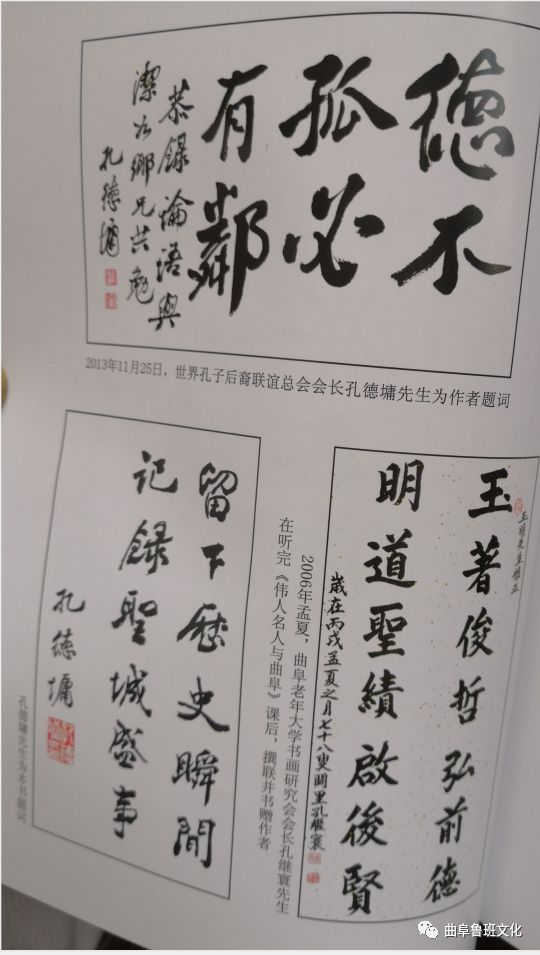 德不
孤必
有鄰
恭錄論語與
潔水鄉兄共勉
孔德墉
2013年11月25日，世界孔子后裔联谊总会会长孔德墉先生为作者题词
玉明先生雅正
玉著俊哲弘前德
明道聖績啟後賢
歲在丙戌孟夏之月七十八叟闕里孔繼寰
2006年孟夏，曲阜老年大学书画研究会会长孔继寰先生
在听完《伟人名人与曲阜》课后，撰联并书赠作者
留下歷史瞬間
记錄聖城盛事
孔德墉
孔德墉先生为本书题词
曲阜鲁班文化